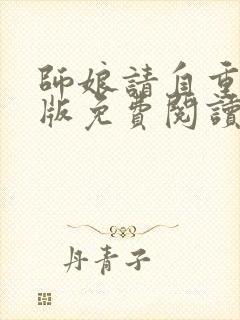 師娘請自重
版免費閱讀
丹青子